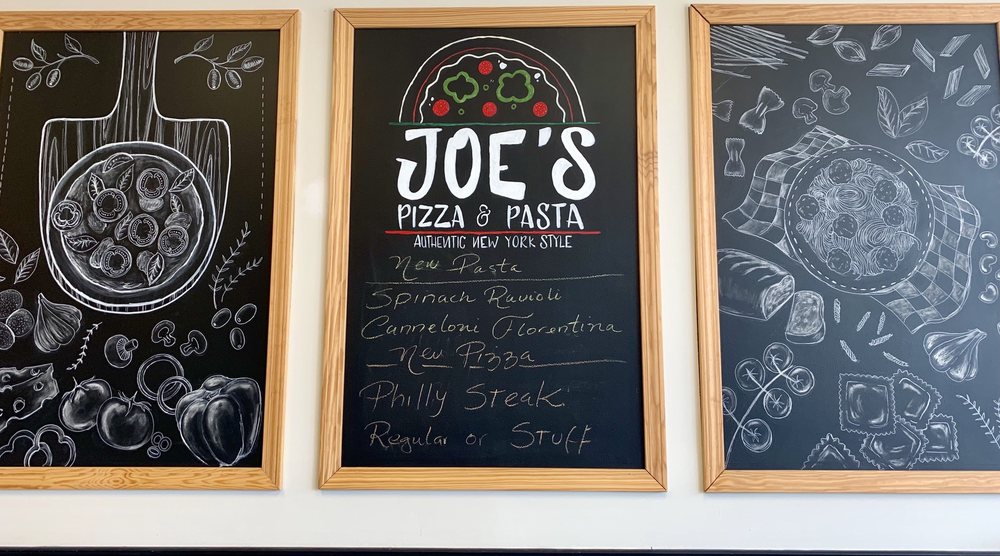 JOE'S
PIZZA & PASTA
AUTHENTIC NEW YORK STYLE
New Pasta
Spinach Ravioli
Canneloni Florentina
New Pizza
Philly Steak
Regular or STUFF